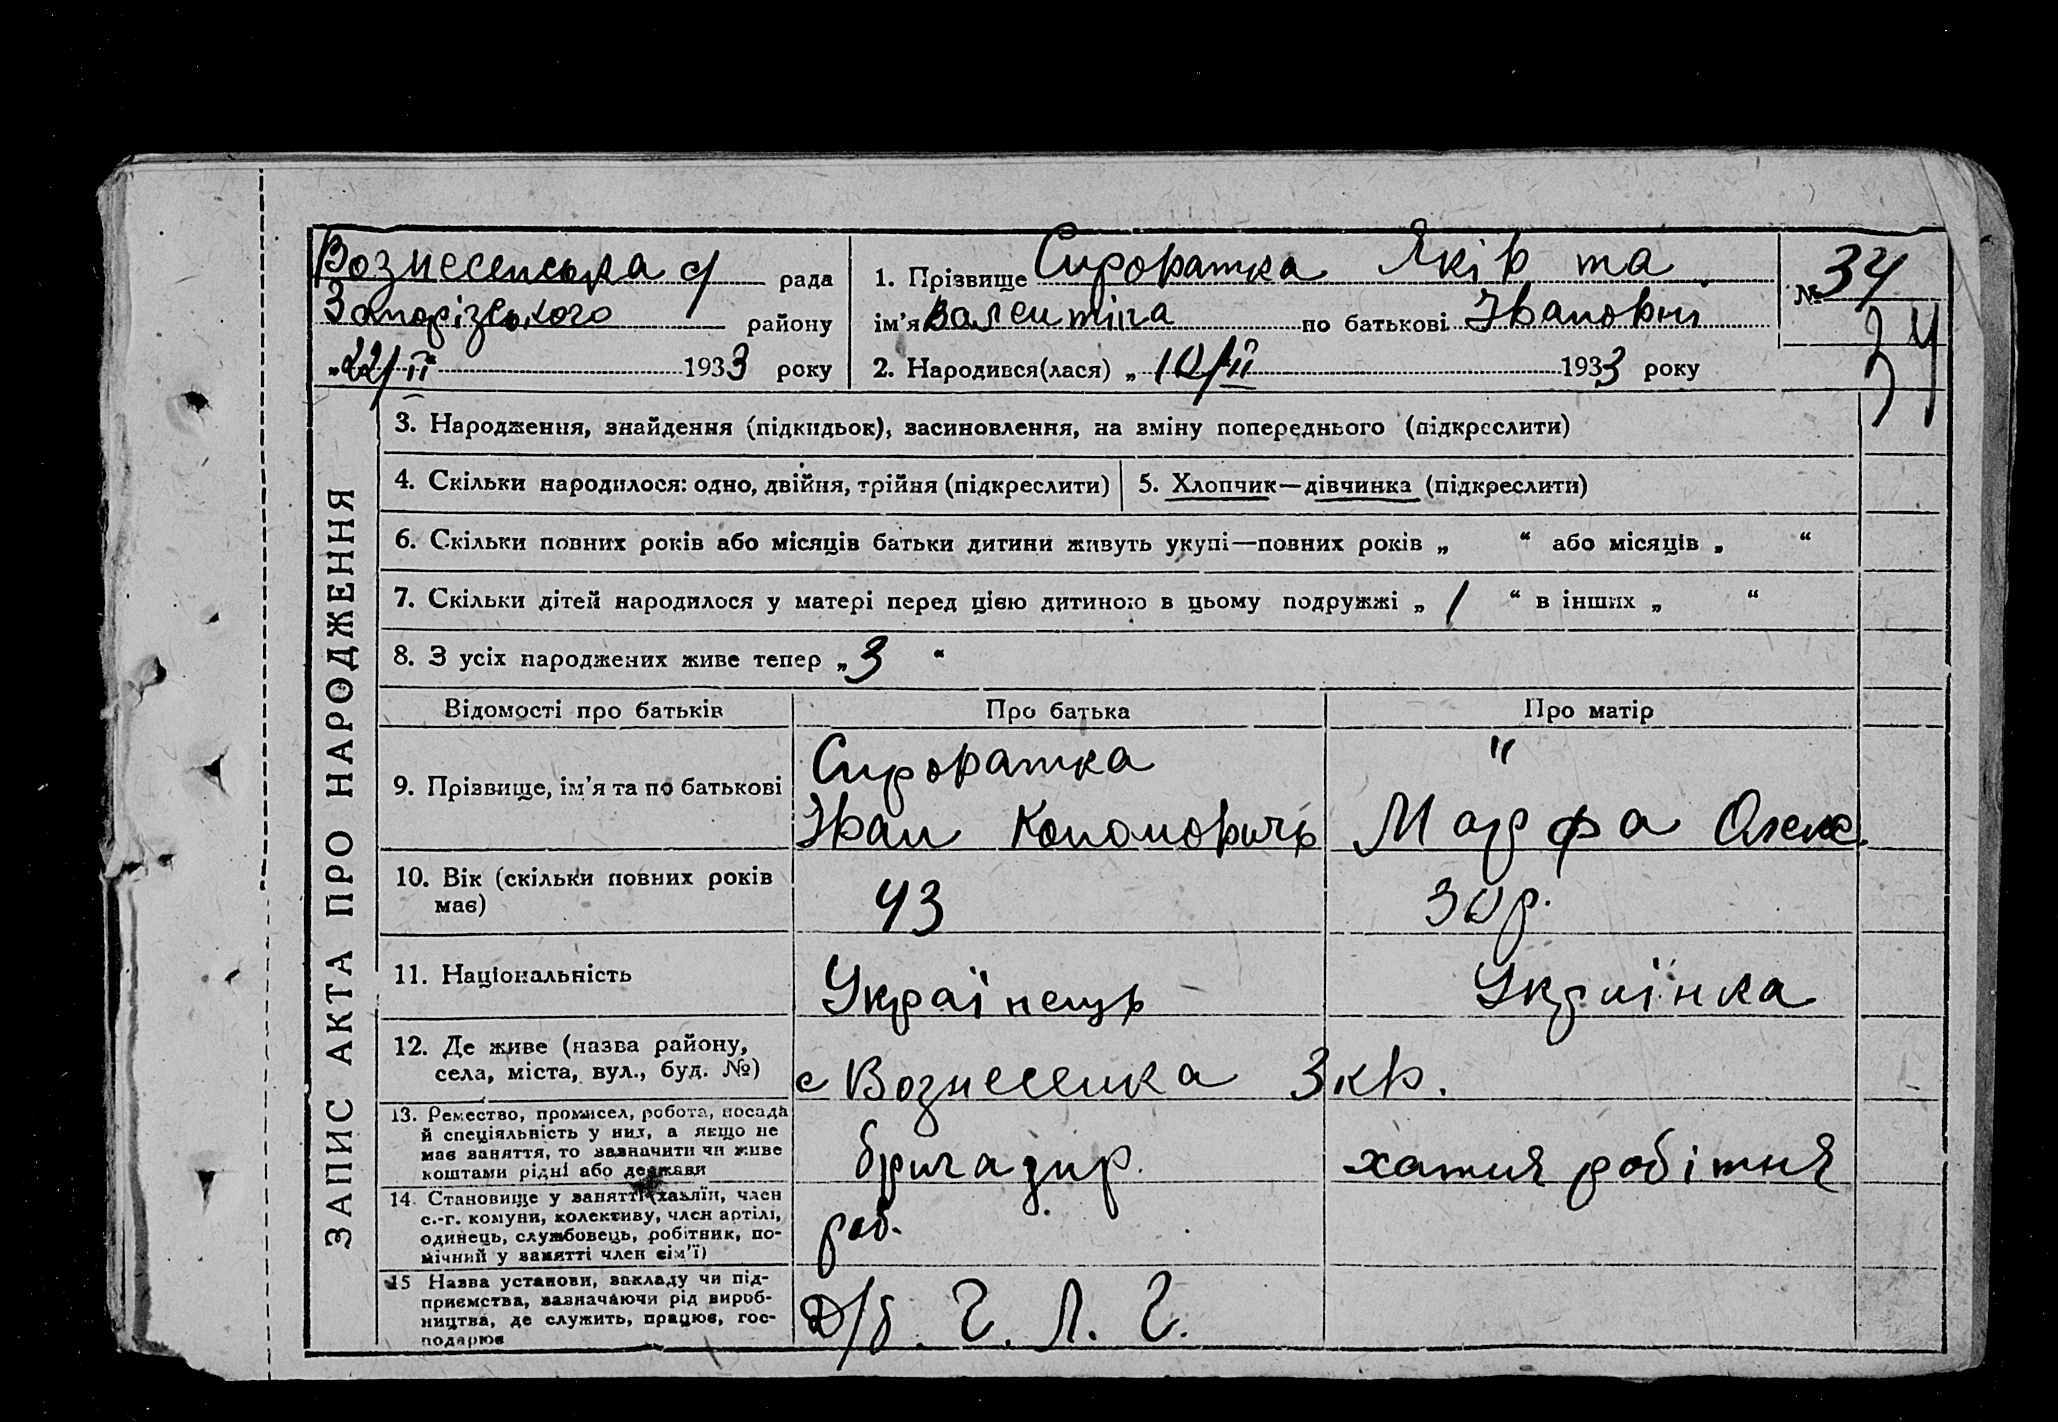 Вознесенська с/ рада
Запорізького району
„22/ІІ" 1933 року
1. Прізвище Сироватка Яків та
ім'я Валентіна по батькові Івановні
2. Народився(лася) „ 10/ІІ 1933 року
№ 34
34
ЗАПИС АКТА ПРО НАРОДЖЕННЯ
3. Народження, знайдення (підкидьок), засиновлення, на зміну попереднього (підкреслити)
4. Скільки народилося: одно, двійня, трійня (підкреслити)
5. Хлопчик—дівчинка (підкреслити)
6. Скільки повних років або місяців батьки дитини живуть укупі—повних років „ “ або місяців „ “
7. Скільки дітей народилося у матері перед цією дитиною в цьому подружжі „ 1 “ в інших „ “
8. З усіх народжених живе тепер „ 3 “
Відомості про батьків
Про батька
Про матір
9. Прізвище, ім'я та по батькові
Сироватка
Іван Кононовичь
"
Марфа Олекс.
10. Вік (скільки повних років
має)
43
30 р.
11. Національність
Українець
Українка
12. Де живе (назва району,
села, міста, вул., буд. №)
с Вознесенка 3 кв.
13. Ремество, промисел, робота, посада
й спеціяльність у них, а якщо не
має заняття, то зазначити чи живе
коштами рідні або держави
бригадир.
хатня робітня
14. Становище у занятті (хазяїн, член
с.-г. комуни, колективу, член артілі,
одинець, службовець, робітник, по-
мічний у занятті член сім'ї)
роб.
15 Назва установи, закладу чи під-
приємства, зазначаючи рід вироб-
ництва, де служить, працює, гос-
подарює
Д/б. Г. Л. Г.